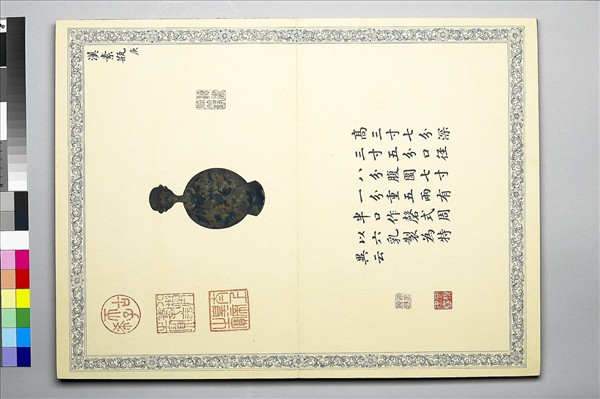 漢素瓶
庚
高三寸七分深
三寸五分口徑
八分腹圍七寸
一分重五兩有
半口作磬式周
以六乳製為特
異云